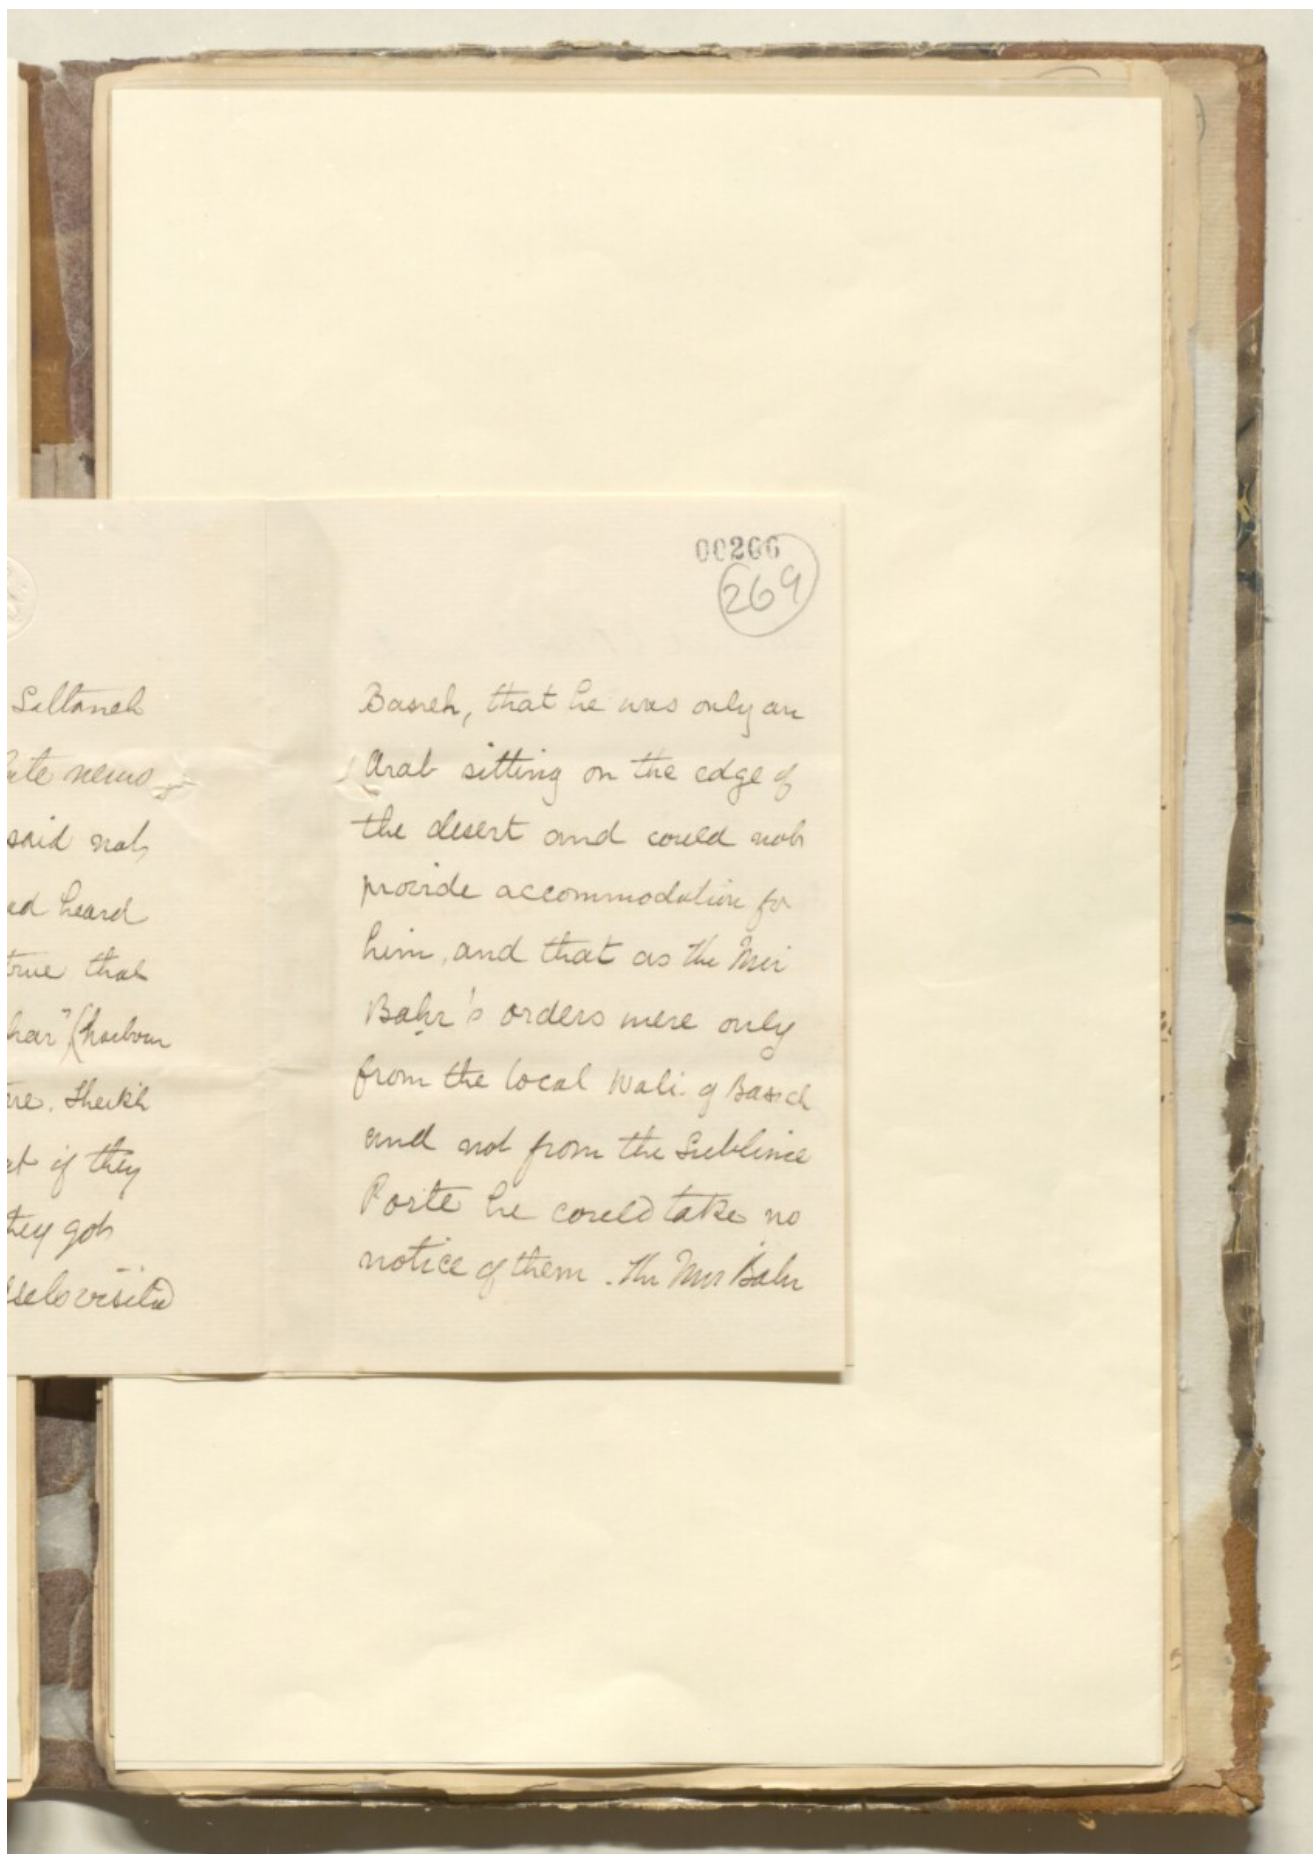 Siltaneh
news
said not
heard
true that
(harbour
Sheikh
if they
they got
visited
00266
269
Basreh, that he was only an
Arab sitting on the edge of
the desert and could not
provide accommodation for
him, and that as the Mir
Bahr's orders were only
from the local Wali of Basreh
and not from the Sublime
Porte he could take no
notice of them. The Mir Bahr